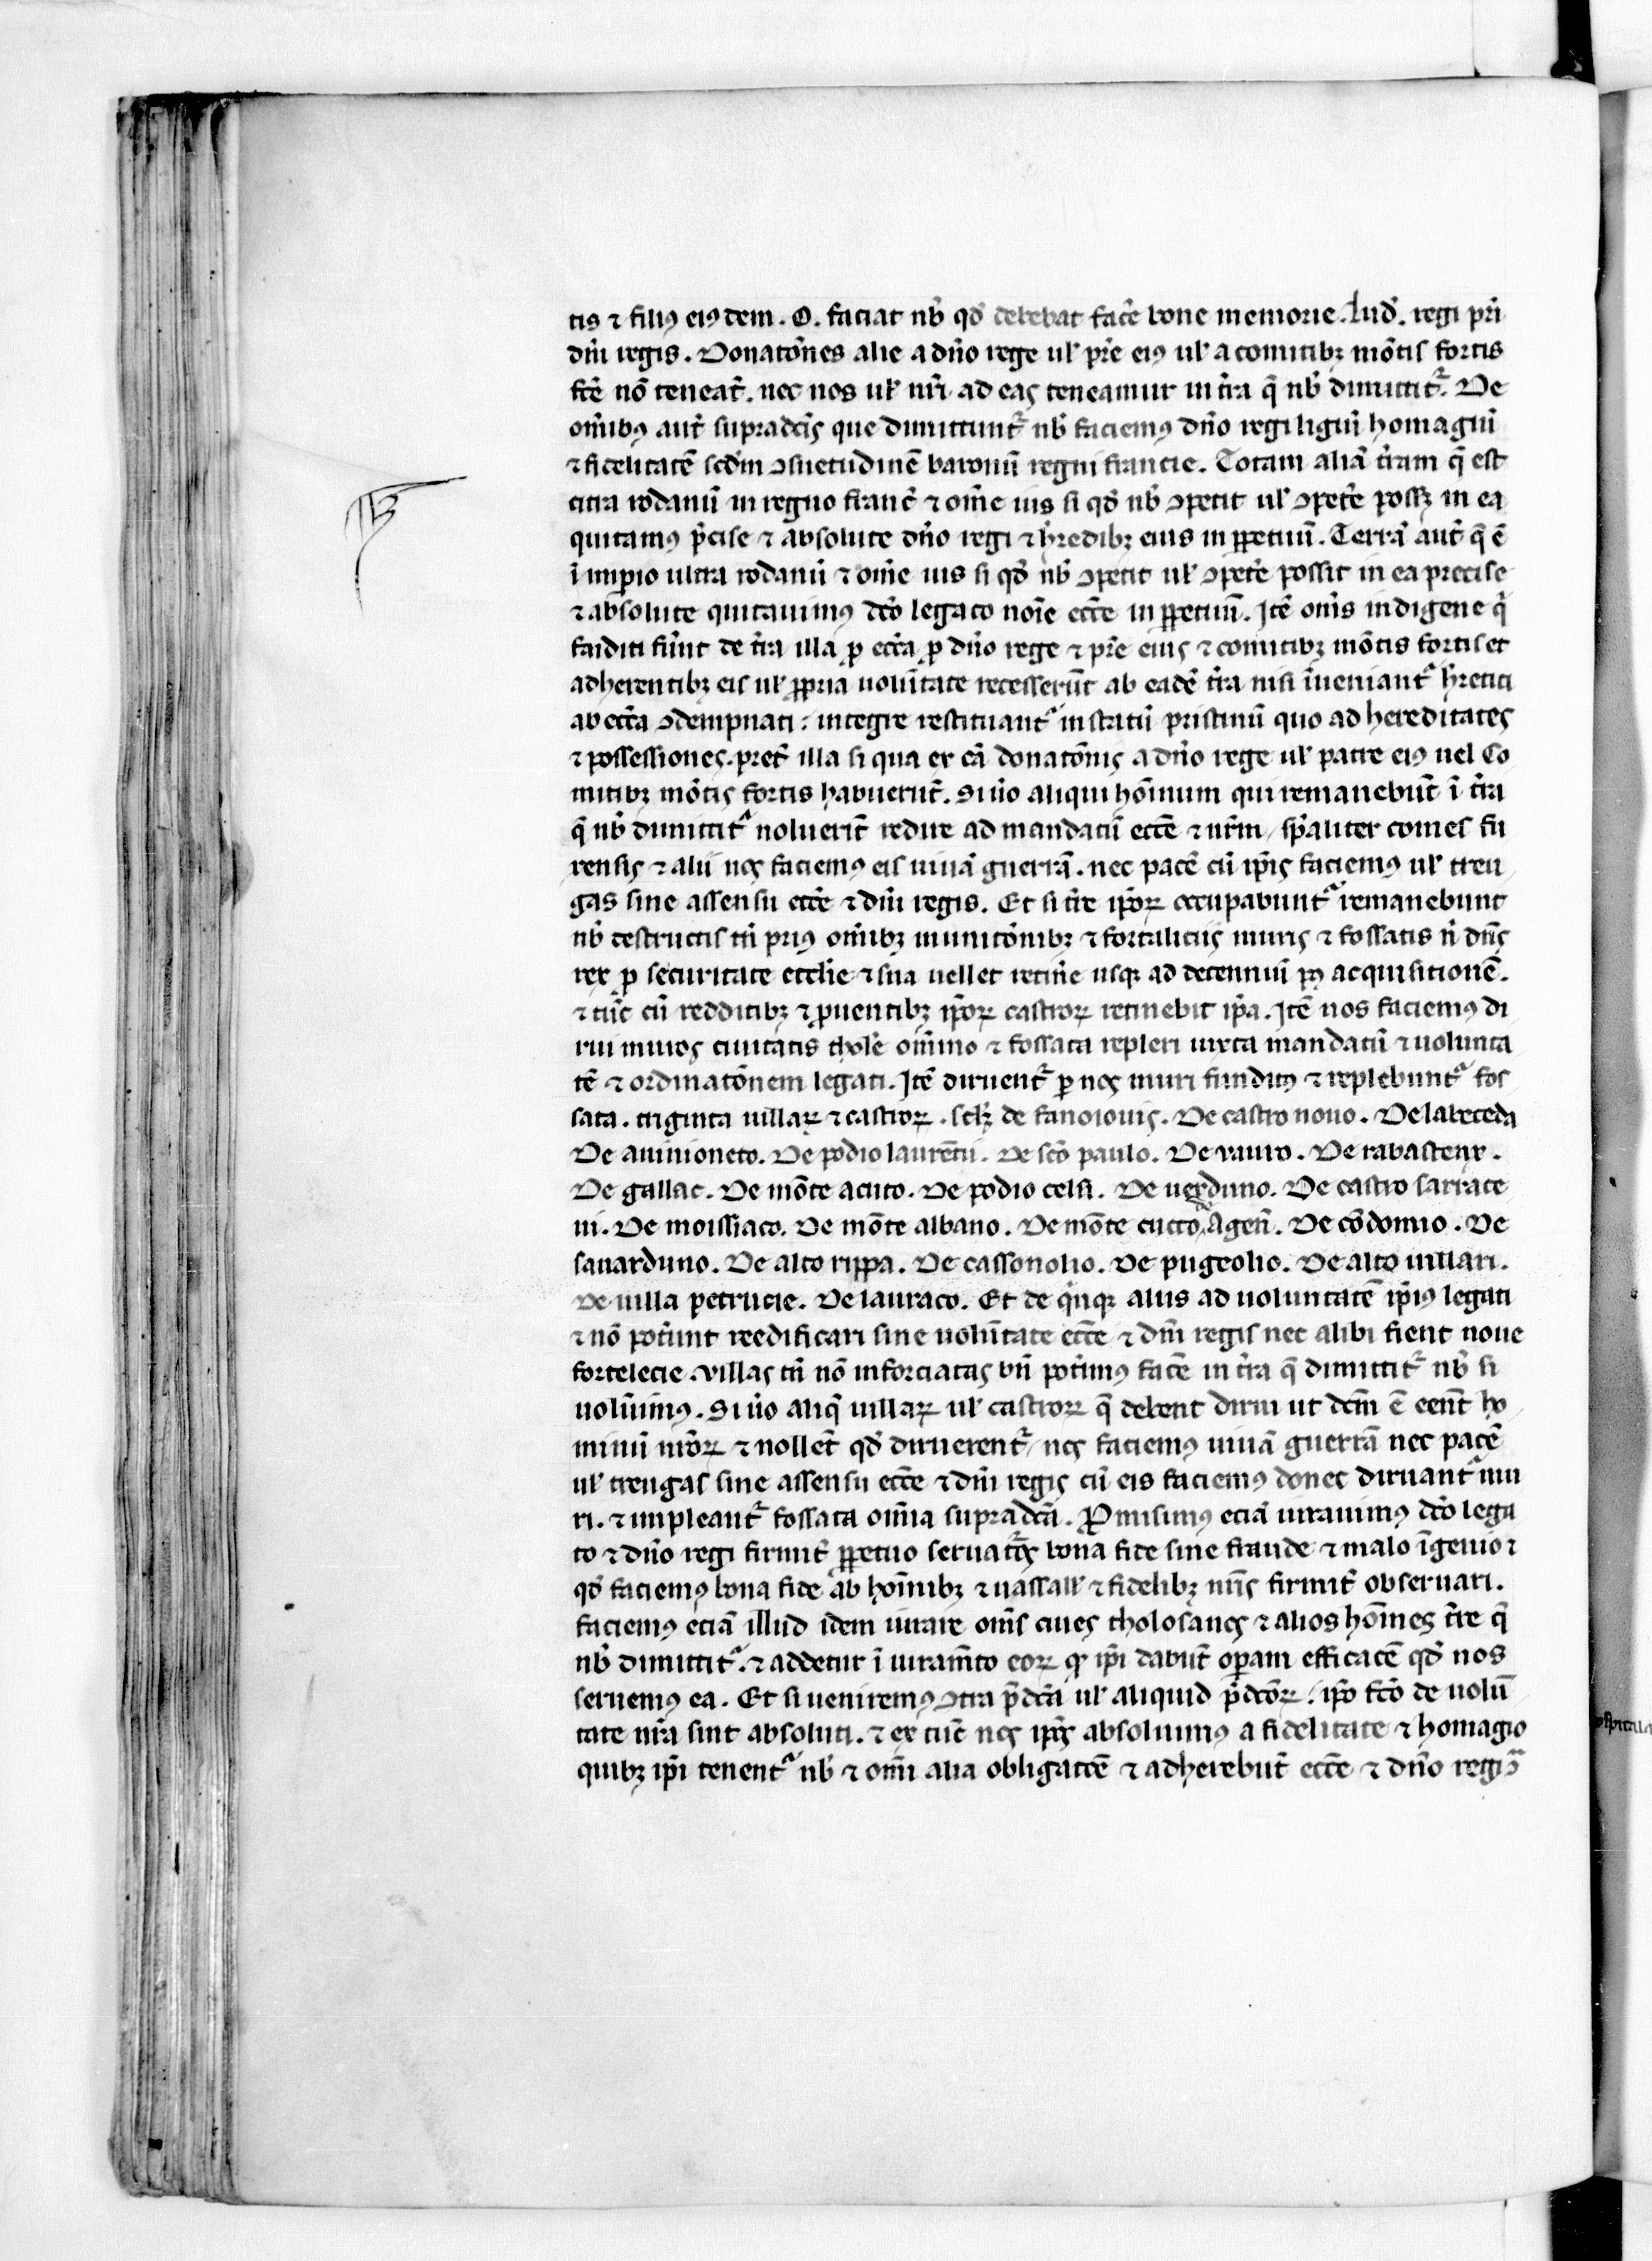 tis ⁊ filiꝰ eiꝰdem . O . faciat nob̃ qd̃ debebat fac̃e bone memorie . lud̃ . regi pr̃i
dñi regis . Donatõnes alie a dño rege uł pr̃e eiꝰ uł a comitibꝫ mõtis fortis
fc̃e nõ teneãt . nec nos uł nr̃i ad eas teneamur in t̃ra q̃ nob̃ dimittit̃ . De
om̃ibꝰ aut̃ supradc̃is que dimittunt̃ nob̃ faciemꝰ dño regi ligiũ homagiũ
⁊ ficelitatẽ scd̃m ꝯsuetudinẽ baronũ regni francie . Totam aliã t̃ram q̃ est
citra rodanũ in regno franc̃ ⁊ om̃e ius si qd̃ nob̃ ꝯpetit uł ꝯpet̃e possꝫ in ea
quitamꝰ p̃cise ⁊ absolute dño regi ⁊ h̃redibꝫ eius in ꝑpetuũ . Terrã aut̃ q̃ ẽ
ĩ imꝑio ultra rodanũ ⁊ om̃e ius si qd̃ nob̃ ꝯpetit uł ꝯpet̃e possit in ea precise
⁊ absolute quitauimꝰ dc̃o legato noĩe ecc̃e in ꝑpetuũ . Itẽ om̃s indigene q̃
faiditi fũnt de t̃ra illa ꝑ ecc̃a ꝑ dño rege ⁊ pr̃e eius ⁊ comitibꝫ mõtis fortis et
adherentibꝫ eis uł ꝓpria uolũtate recesserũt ab eadẽ t̃ra nisi ĩueniant̃ h̃retici
ab ecc̃a ꝯdempnati : integre restituant̃ in statũ pristinũ quo ad hereditates
⁊ possessiones . pret̃ illa si qua ex cã donatõnis a dño rege uł patre eiꝰ uel Co
mitibꝫ mõtis fortis habuerũt . Si uõ aliqui hõinum qui remanebũt ĩ t̃ra
q̃ nob̃ dimittit̃ noluerĩt redire ad mandatũ ecc̃e ⁊ nr̃m / sp̃aliter comes fu
rensis ⁊ alii nos faciemꝰ eis uiuã guerrã . nec pacẽ cũ ip̃is faciemꝰ uł treu
gas sine assensu ecc̃e ⁊ dñi regis . Et si t̃re ip̃oꝝ occupabunt̃ remanebunt
nob̃ destructis tñ priꝰ om̃ibꝫ munitõnibꝫ ⁊ fortaliciis muris ⁊ fossatis ñ dñs
rex ꝑ securitate ecclẽie ⁊ sua uellet retiñe usqꝫ ad decenniũ pꝰ acquisitionẽ .
⁊ tũc cũ redditibꝫ ⁊ ꝓuentibꝫ ip̃oꝝ castroꝝ retinebit ip̃a . Itẽ nos faciemꝰ di
rui muros ciuitatis thol̃e om̃ino ⁊ fossata repleri iuxta mandatũ ⁊ uolunta
tẽ ⁊ ordinatõnem legati . Itẽ diruent̃ ꝑ nos muri funditꝰ ⁊ replebunt̃ fos
sata . triginta uillaꝝ ⁊ castroꝝ . sclꝫ de fanoiouis . De castro nouo . De labeceda
De auinioneto . De podio laurẽtii . De scõ paulo . De vauro . De rabastenx .
De gallac . De mõte acuto . De podio celsi . De uerduno . De castro sarrace
ni . De moissiaco . De mõte albano . De mõte cucco de Agen̄ . De cõdomio . De
sauarduno . De alto rippa . De cassonolio . De pugeolio . De alto uillari .
De uilla petrucie . De lauraco . Et de q̃nqꝫ aliis ad uoluntatẽ ip̃iꝰ legati
⁊ nõ pot̃unt reedificari sine uolũtate ecc̃e ⁊ dñi regis nec alibi fient noue
fortelecie . villas tñ nõ inforciatas bñ pot̃imꝰ fac̃e in t̃ra q̃ dimittit̃ nob̃ si
uolũimꝰ . Si uõ aliq̃ uillaꝝ uł castroꝝ q̃ debent dirui ut dc̃m ẽ eẽnt ho
minũ nr̃oꝝ ⁊ nollẽt qd̃ diruerent̃ / nos faciemꝰ uiuã guerrã nec pacẽ
uł treugas sine assensu ecc̃e ⁊ dñi regis cũ eis faciemꝰ donec diruant̃ mu
ri . ⁊ impleant̃ fossata om̃ia supradc̃a . Ꝓmisimꝰ eciã iurauimꝰ dc̃o lega
to ⁊ dño regi firmit̃ ꝑpetuo seruat̃os bona fide sine fraude ⁊ malo ĩgenio ⁊
qd̃ faciemꝰ bona fide ab hõinibꝫ ⁊ uassall̃ ⁊ fidelibꝫ nr̃is firmit̃ obseruari .
faciemꝰ eciã illud idem iurare om̃s ciues tholosanos ⁊ alios hõines t̃re q̃
nob̃ dimittit̃ . ⁊ addetur ĩ iuram̃to eoꝝ ꝙ ip̃i dabũt oꝑam efficacẽ qd̃ nos
seruemꝰ ea . Et si ueniremꝰ ꝯtra p̃dc̃a uł aliquid p̃dc̃oꝝ . ip̃o fc̃o de uolũ
tate nr̃a sint absoluti . ⁊ ex tũc nos ip̃os absoluimus a fidelitate ⁊ homagio
quibꝫ ip̃i tenent̃ nob̃ ⁊ om̃i alia obligatõe ⁊ adherebũt ecc̃e ⁊ dño regi ꝯ̃